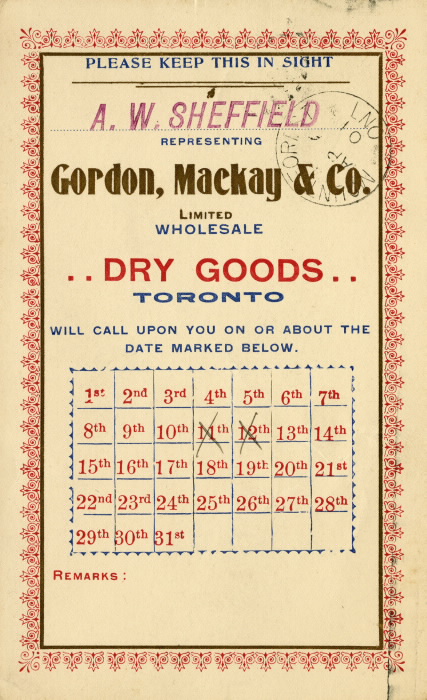 PLEASE KEEP THIS IN SIGHT
A. W. SHEFFIELD
REPRESENTING
Gordon, Mackay & Co.
LIMITED
WHOLESALE
..DRY GOODS..
TORONTO
WILL CALL UPON YOU ON OR ABOUT THE
DATE MARKED BELOW.
1st 2nd 3rd 4th 5th 6th 7th
8th 9th 10th 11th 12th 13th 14th
15th 16th 17th 18th 19th 20th 21st
22nd 23rd 24th 25th 26th 27th 28th
29th 30th 31st
REMARKS:
ONT